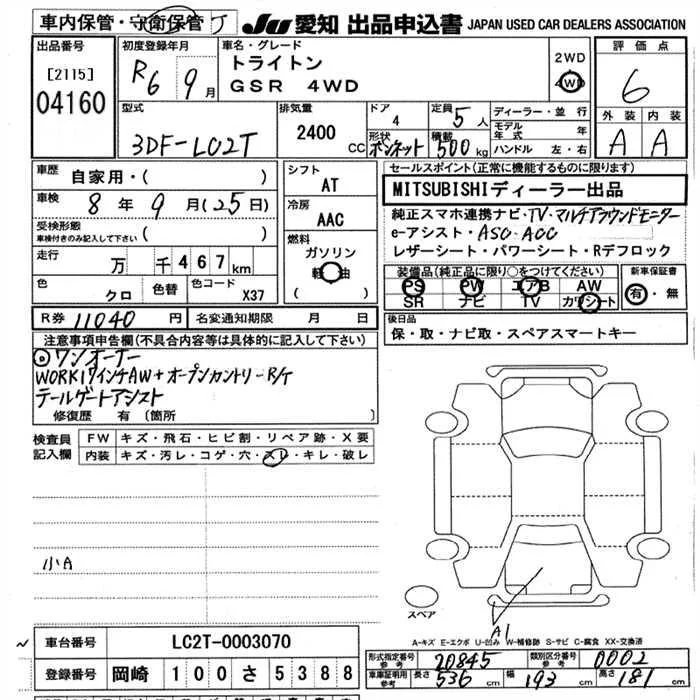 車内保管・守衛保管 J
JU 愛知 出品申込書 JAPAN USED CAR DEALERS ASSOCIATION
出品番号 [2115] 04160
初度登録年月 R6 9月
車名・グレード トライトン GSR 4WD
2WD 4WD
評価点 6
外装 内装 A A
型式 3DF-LC2T
排気量 2400 CC
ドア 4
形状 ボンネット
定員 5人
積載 500 kg
ディーラー・並行
モデル年式 年
ハンドル 左・右
車歴 自家用・( )
車検 8年9月(25日)
受検形態 車検付きのみ記入して下さい ( )
走行 万 千467km
色 クロ 色替 色コード X37
シフト AT
冷房 AAC
燃料 ガソリン 軽油 ( )
セールスポイント(正常に機能するものに限ります)
MITSUBISHIディーラー出品
純正スマホ連携ナビ・TV・マルチアラウンドモニター
e-アシスト・ASC・ACC
レザーシート・パワーシート・Rデフロック
装備品(純正品に限り○をつけてください)
PS PW エアB AW
SR ナビ TV カワシート
新車保証書 有・無
R券 11040 円 名変通知期限 月 日
後日品
保・取・ナビ取・スペアスマートキー
注意事項申告欄(不具合内容等は具体的に記入して下さい)
ワンオーナー
WORK17インチAW+オープンカントリーR/T
テールゲートアシスト
修復歴 有 〔箇所 〕
検査員記入欄
FW キズ・飛石・ヒビ割・リペア跡・X要
内装 キズ・汚レ・コゲ・穴・スレ・キレ・破レ
小A
スペア
A1
A-キズ E-エクボ U-凹み W-補修跡 S-サビ C-腐食 XX-交換済
車台番号 LC2T-0003070
登録番号 岡崎 100 さ 5388
形式指定番号 参考 20845 類別区分番号 参考 0002
車庫証明用 参考 長さ 536 cm 幅 193 cm 高さ 181 cm